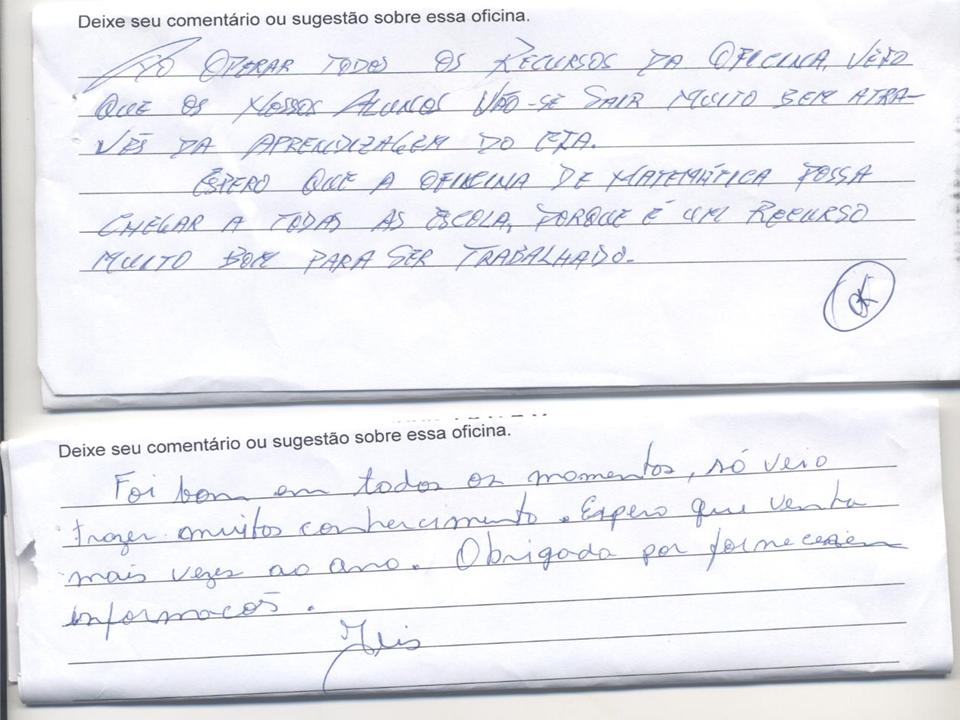 Deixe seu comentário ou sugestão sobre essa oficina.
AO OPERAR TODOS OS RECURSOS DA OFICINA, VEJO
QUE OS NOSSOS ALUNOS VÃO-SE SAIR MUITO BEM ATRA-
VÉS DA APRENDIZAGEM DO
ESPERO QUE A OFICINA DE MATEMÁTICA POSSA
CHEGAR A TODAS AS ESCOLA, PORQUE É UM RECURSO
MUITO BOM PARA SER TRABALHADO.
OK
Deixe seu comentário ou sugestão sobre essa oficina.
Foi bom em todos os momentos, só veio
trazer muitos conhecimento. Espero que venha
mais vezes ao ano. Obrigada por fornecerem
informacõs.